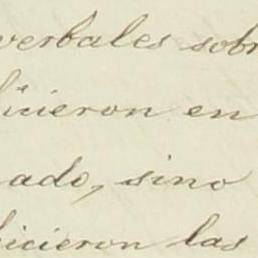 verbales sobr
hicieron en
ado, sino
hicieron las